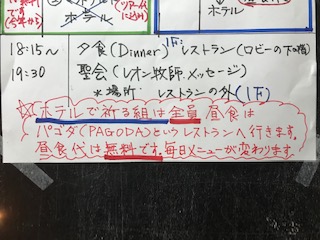 ホテル
ホテル
18:15～ 夕食(Dinner) 1F: レストラン(ロビーの下の階)
19:30 聖会(レオン牧師メッセージ)
*場所 レストランの外(1F)
☆ホテルで祈る組は全員昼食は
パゴダ(PAGODA)というレストランへ行きます。
昼食代は無料です。毎日メニューが変わります。